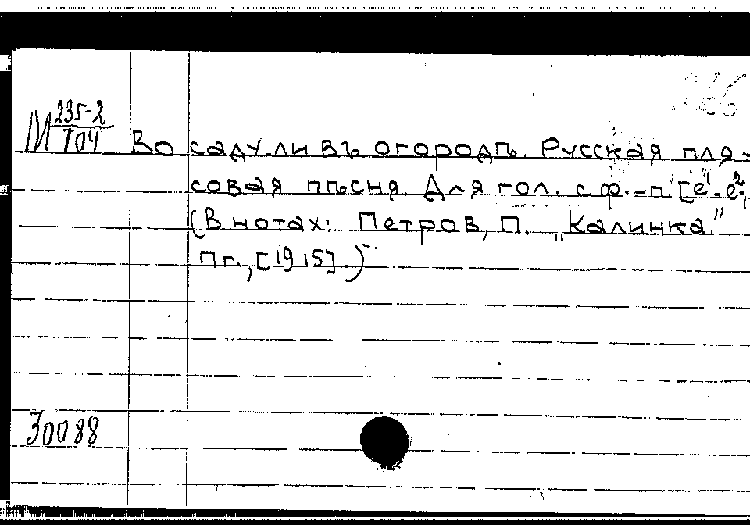 М 235-2
704
Во саду ли въ огородѣ. Русская пля-
совая пѣсня. Для гол. с ф.-п. [e¹-e²]
(В нотах: Петров, П. „Калинка"
Пг., [1915].)
30088